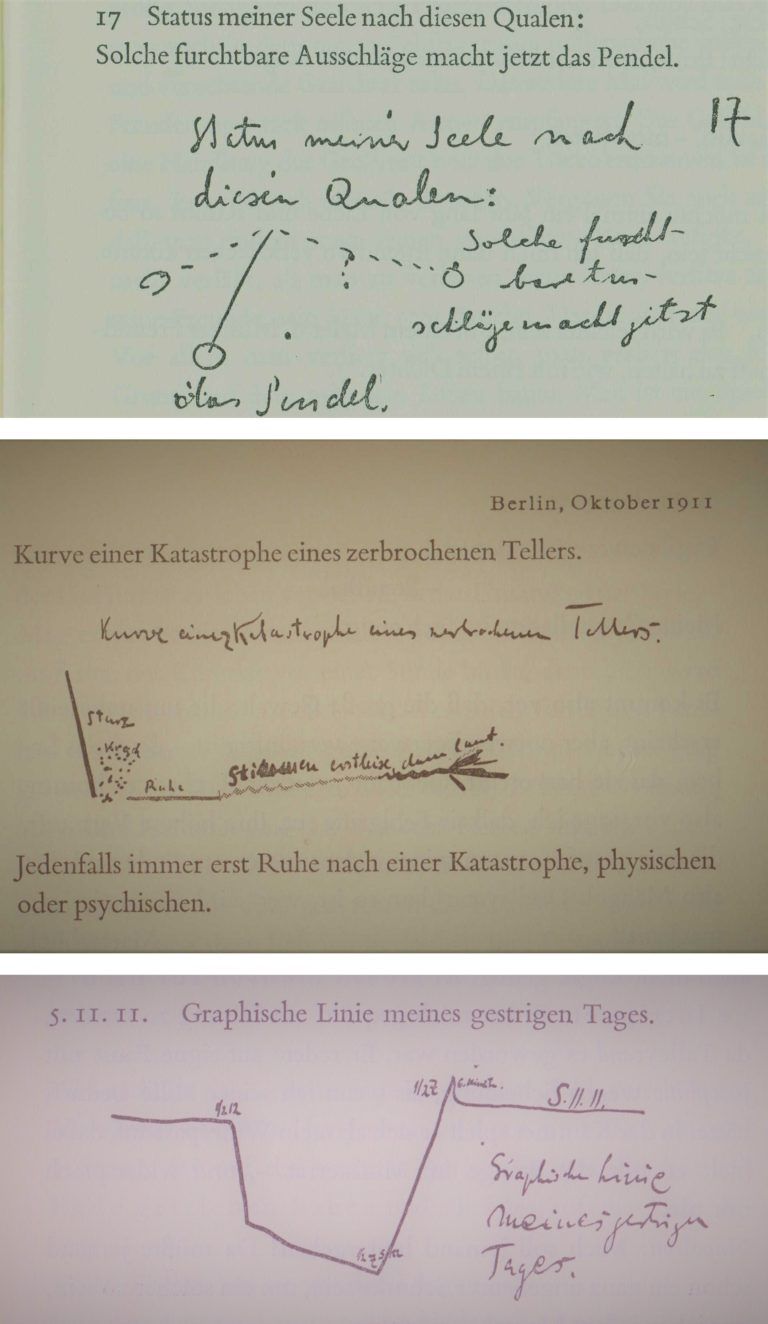 17 Status meiner Seele nach diesen Qualen:
Solche furchtbare Ausschläge macht jetzt das Pendel.
Status meiner Seele nach 17
diesen Qualen:
Solche furcht-
bare Aus-
schläge macht jetzt
das Pendel.
Berlin, Oktober 1911
Kurve einer Katastrophe eines zerbrochenen Tellers.
Kurve einer Katastrophe eines zerbrochenen Tellers.
Sturz
Krach
Ruhe
Stimmen erst leise, dann laut.
Jedenfalls immer erst Ruhe nach einer Katastrophe, physischen
oder psychischen.
5. 11. 11. Graphische Linie meines gestrigen Tages.
1/2 12
1/2 7
5. 11. 11.
Graphische Linie
meines gestrigen
Tages.